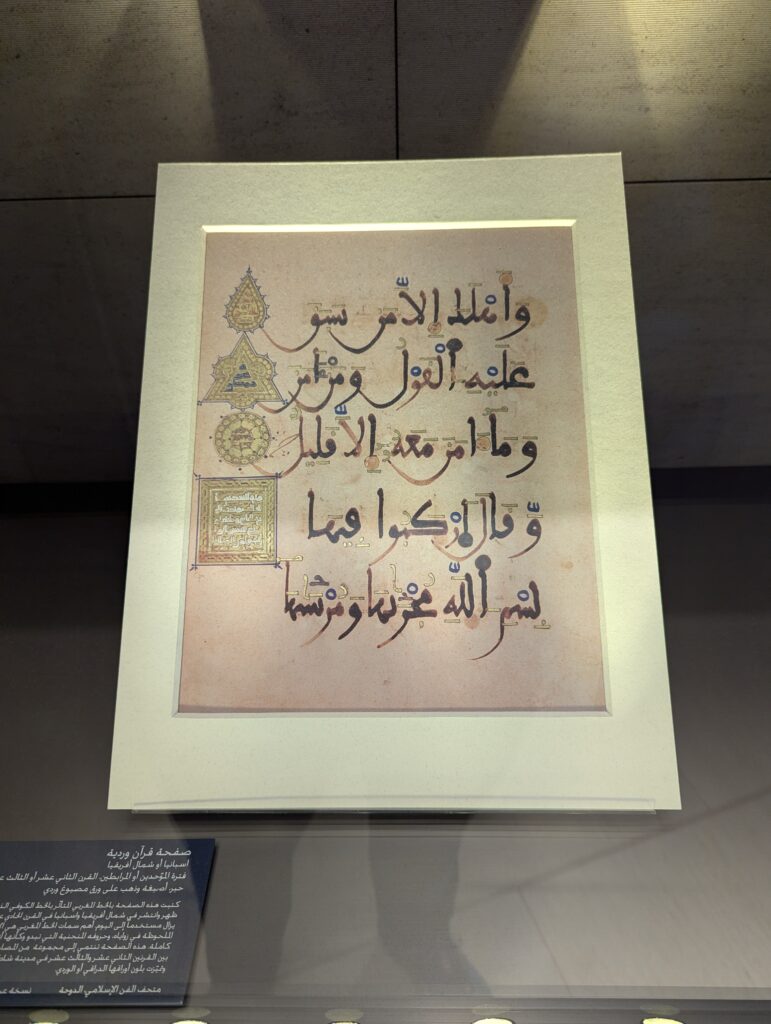 وأهلك إلا من سبق
عليه القول ومن ءامن
وما ءامن معه إلا قليل
وقال اركبوا فيها
بسم الله مجريها ومرسيها
صفحة قرآن وردية
اسبانيا أو شمال أفريقيا
فترة الموّحدين أو المرابطين، القرن الثاني عشر أو الثالث
حبر، أصبغة وذهب على ورق مصبوغ وردي
كتبت هذه الصفحة بالخط المغربي المتأثر بالخط الكوفي
ظهر وانتشر في شمال أفريقيا واسبانيا في القرن الحادي
يزال مستخدماً إلى اليوم أهم سمات الخط المغربي هي
الملحوظة في زواياه، وحروفه المنحنية التي تبدو وكأنها
كاملة. هذه الصفحة تنتمي إلى مجموعة من
بين القرنين الثاني عشر والثالث عشر في مدينة
وتميّزت بلون أوراقها الدراقي أو الوردي
متحف الفن الإسلامي الدوحة نسخة